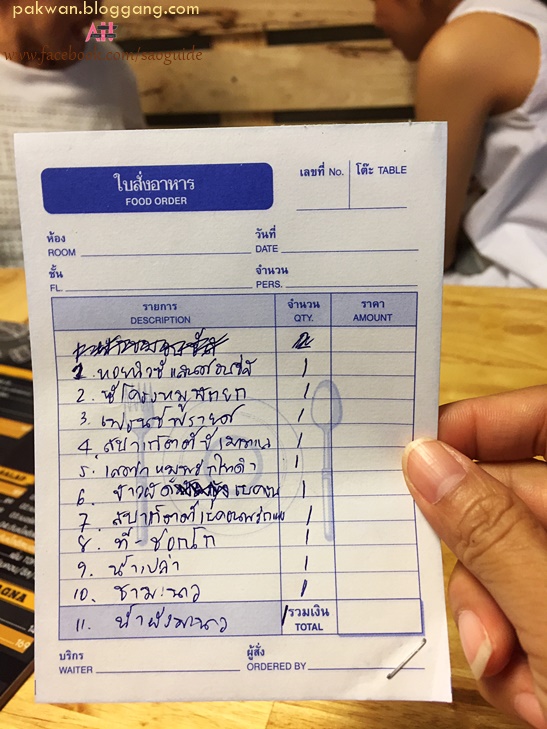 pakwan.bloggang.com
www.facebook.com/saoguide
ใบสั่งอาหาร
FOOD ORDER
เลขที่ No.
โต๊ะ TABLE
ห้อง
ROOM
วันที่
DATE
ชั้น
FL.
จำนวน
PERS.
รายการ
DESCRIPTION
จำนวน
QTY.
ราคา
AMOUNT
1. 1
2. ซี่โครงหมู 1
3. เฟรนช์ฟรายส์ 1
4. สปาเก็ตตี้ 1
5. 1
6. ข้าวผัด เบคอน 1
7. สปาเก็ตตี้เบคอนพริกแห้ง 1
8. ที-ช็อกโก 1
9. น้ำเปล่า 1
10. ชามะนาว 1
11. น้ำผึ้งมะนาว 1
รวมเงิน
TOTAL
บริกร
WAITER
ผู้สั่ง
ORDERED BY